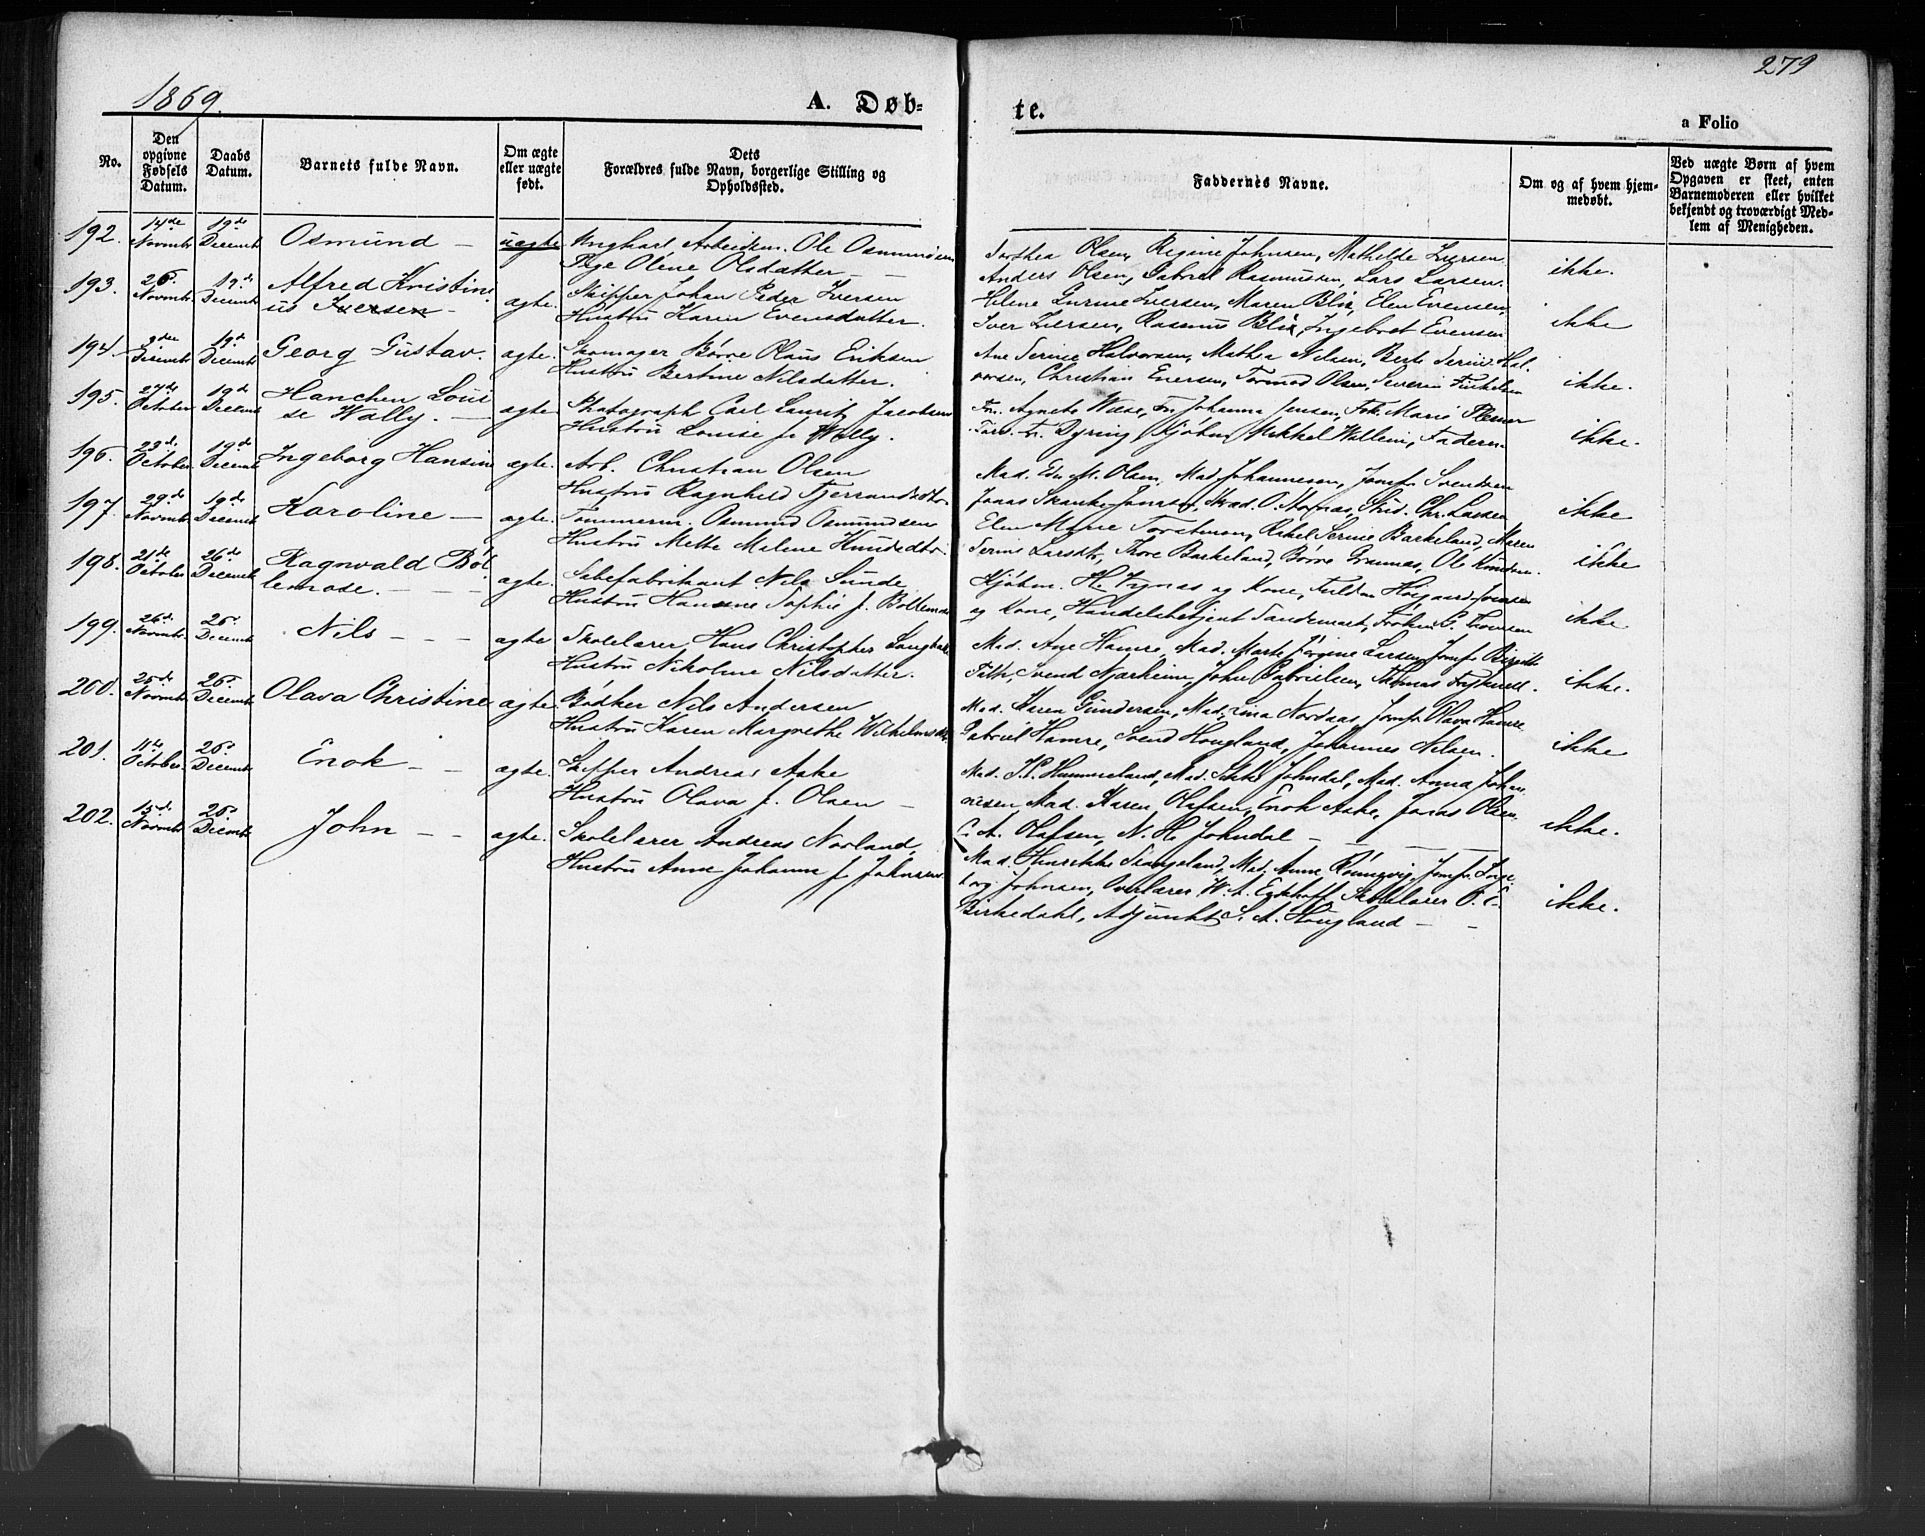 1869.
A. Døb-
te.
279
a Folio
No.
Den opgivne Fødsels Datum.
Daabs Datum.
Barnets fulde Navn.
Om ægte eller uægte født.
Dets Forældres fulde Navn, borgerlige Stilling og Opholdssted.
Faddernes Navne.
Om og af hvem hjem-
medøbt.
Ved uægte Børn af hvem
Opgaven er skeet, enten
Barnemoderen eller hvilket
bekjendt og troværdigt Med-
lem af Menigheden.
192. 14de Novembr 19de Decembr Osmund — uægte Ungkarl Arbeidsm. Ole Osmundsen
Pige Olene Olsdatter — —
Dorthea Olsen, Regine Johnsen, Mathilde Iversen
Anders Olsen, Gabriel Rasmussen, Lars Larsen.
ikke.
193. 26. Novembr 19de Decembr Alfred Kristin-
ius Iversen — ægte. Skipper Johan Peder Iversen
Hustru Karen Evensdatter.
Helene Gurine Iversen, Maren Blix, Elen Evensen,
Iver Iversen, Rasmus Blix, Ingebret Evensen
ikke
194. Decembr 19de Decembr Georg Gustav. ægte. Skomager Børre Olaus Eriksen
Hustru Bertine Nilsdatter.
Ane Serine Halvorsen, Mathea Nilsen, Berte Serine Hal-
vorsen, Christian Enersen, Tormod Olsen, Severin
ikke.
195. 27de October 19de Decembr Hanchen Loui-
se Wally. — ægte. Photograph Carl Lauritz Jacobsen
Hustru Louise f. Wally.
Fr. Agnete Wiese, Fr. Johanna Jensen, Frk. Marie Plesner
Fr. Dyring, Kjøbm. Mikkel Faderen
ikke.
196. 23de October 19de Decembr Ingeborg Hansine ægte. Arb. Christian Olsen
Hustru Ragnhild
Mad. Olsen, Mad. Johannesen, Jomfr. Svendsen
Jonas Jonasen, O. Chr. Larsen
ikke
197. 29de Novembr 19de Decembr Karoline — ægte. Tømmerm. Osmund Osmundsen
Hustru Mette Malene Knudsdtr.
Elen Marie Torstensen, Rakel Serine Barkeland, Maren
Serine Larsdtr, Thore Barkeland, Børre Ole Knudsen.
ikke
198. 21de October 26de Decembr Ragnvald Böl-
lemose. — — — ægte. Sæbefabrikant Nils Sunde
Hustru Hansine Sophie f. Böllemose
Kjøbm. H. og Kone, Høigaard
og Kone, Handelsbetjent Sandemart, Frøken
ikke
199. 26de Novembr 26. Decembr Nils — — — ægte Skolelærer Hans Christopher
Hustru Nikoline Nilsdatter.
Mad. Ane Hamre, Mad. Marte Jørgine Larsen, Jomfr Birgitte
Svend Njærheim, John Gabrielsen, Thomas
ikke.
200. 25de Novembr 26. Decembr Olava Christine ægte. Bødker Nils Andersen
Hustru Karen Margrethe Wilhelmsdtr.
Mad. Karen Gundersen, Mad. Lina Nordaas, Jomfr. Olava Hamre
Gabriel Hamre, Svend Hougland, Johannes Nilsen.
ikke
201. 11te October 26. Decembr Enok — — ægte. Skipper Andreas Aske
Hustru Olava f. Olsen —
Mad. Hummeland, Mad. Johndal, Mad. Anna Johan-
nesen Mad. Karen Olafsen, Enok Aske, Jonas Olsen,
C. A. Olafsen, N. H. Johndal — — —
ikke.
202. 15de Novembr 26. Decembr John — — ægte. Skolelærer Andreas Norland,
Hustru Anne Johanne f. Johnsen
Mad. Henrikke Stangeland, Mad. Anne Rönnevig, Jomfr. Inge-
borg Johnsen, Overlærer W. A. Eckhoff, Skolelærer
Birkedahl, Adjunkt S. A. Hougland — —
ikke.